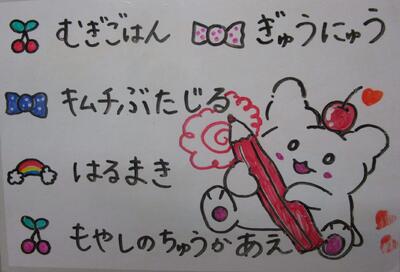 むぎごはん ぎゅうにゅう
キムチぶたじる
はるまき
もやしのちゅうかあえ